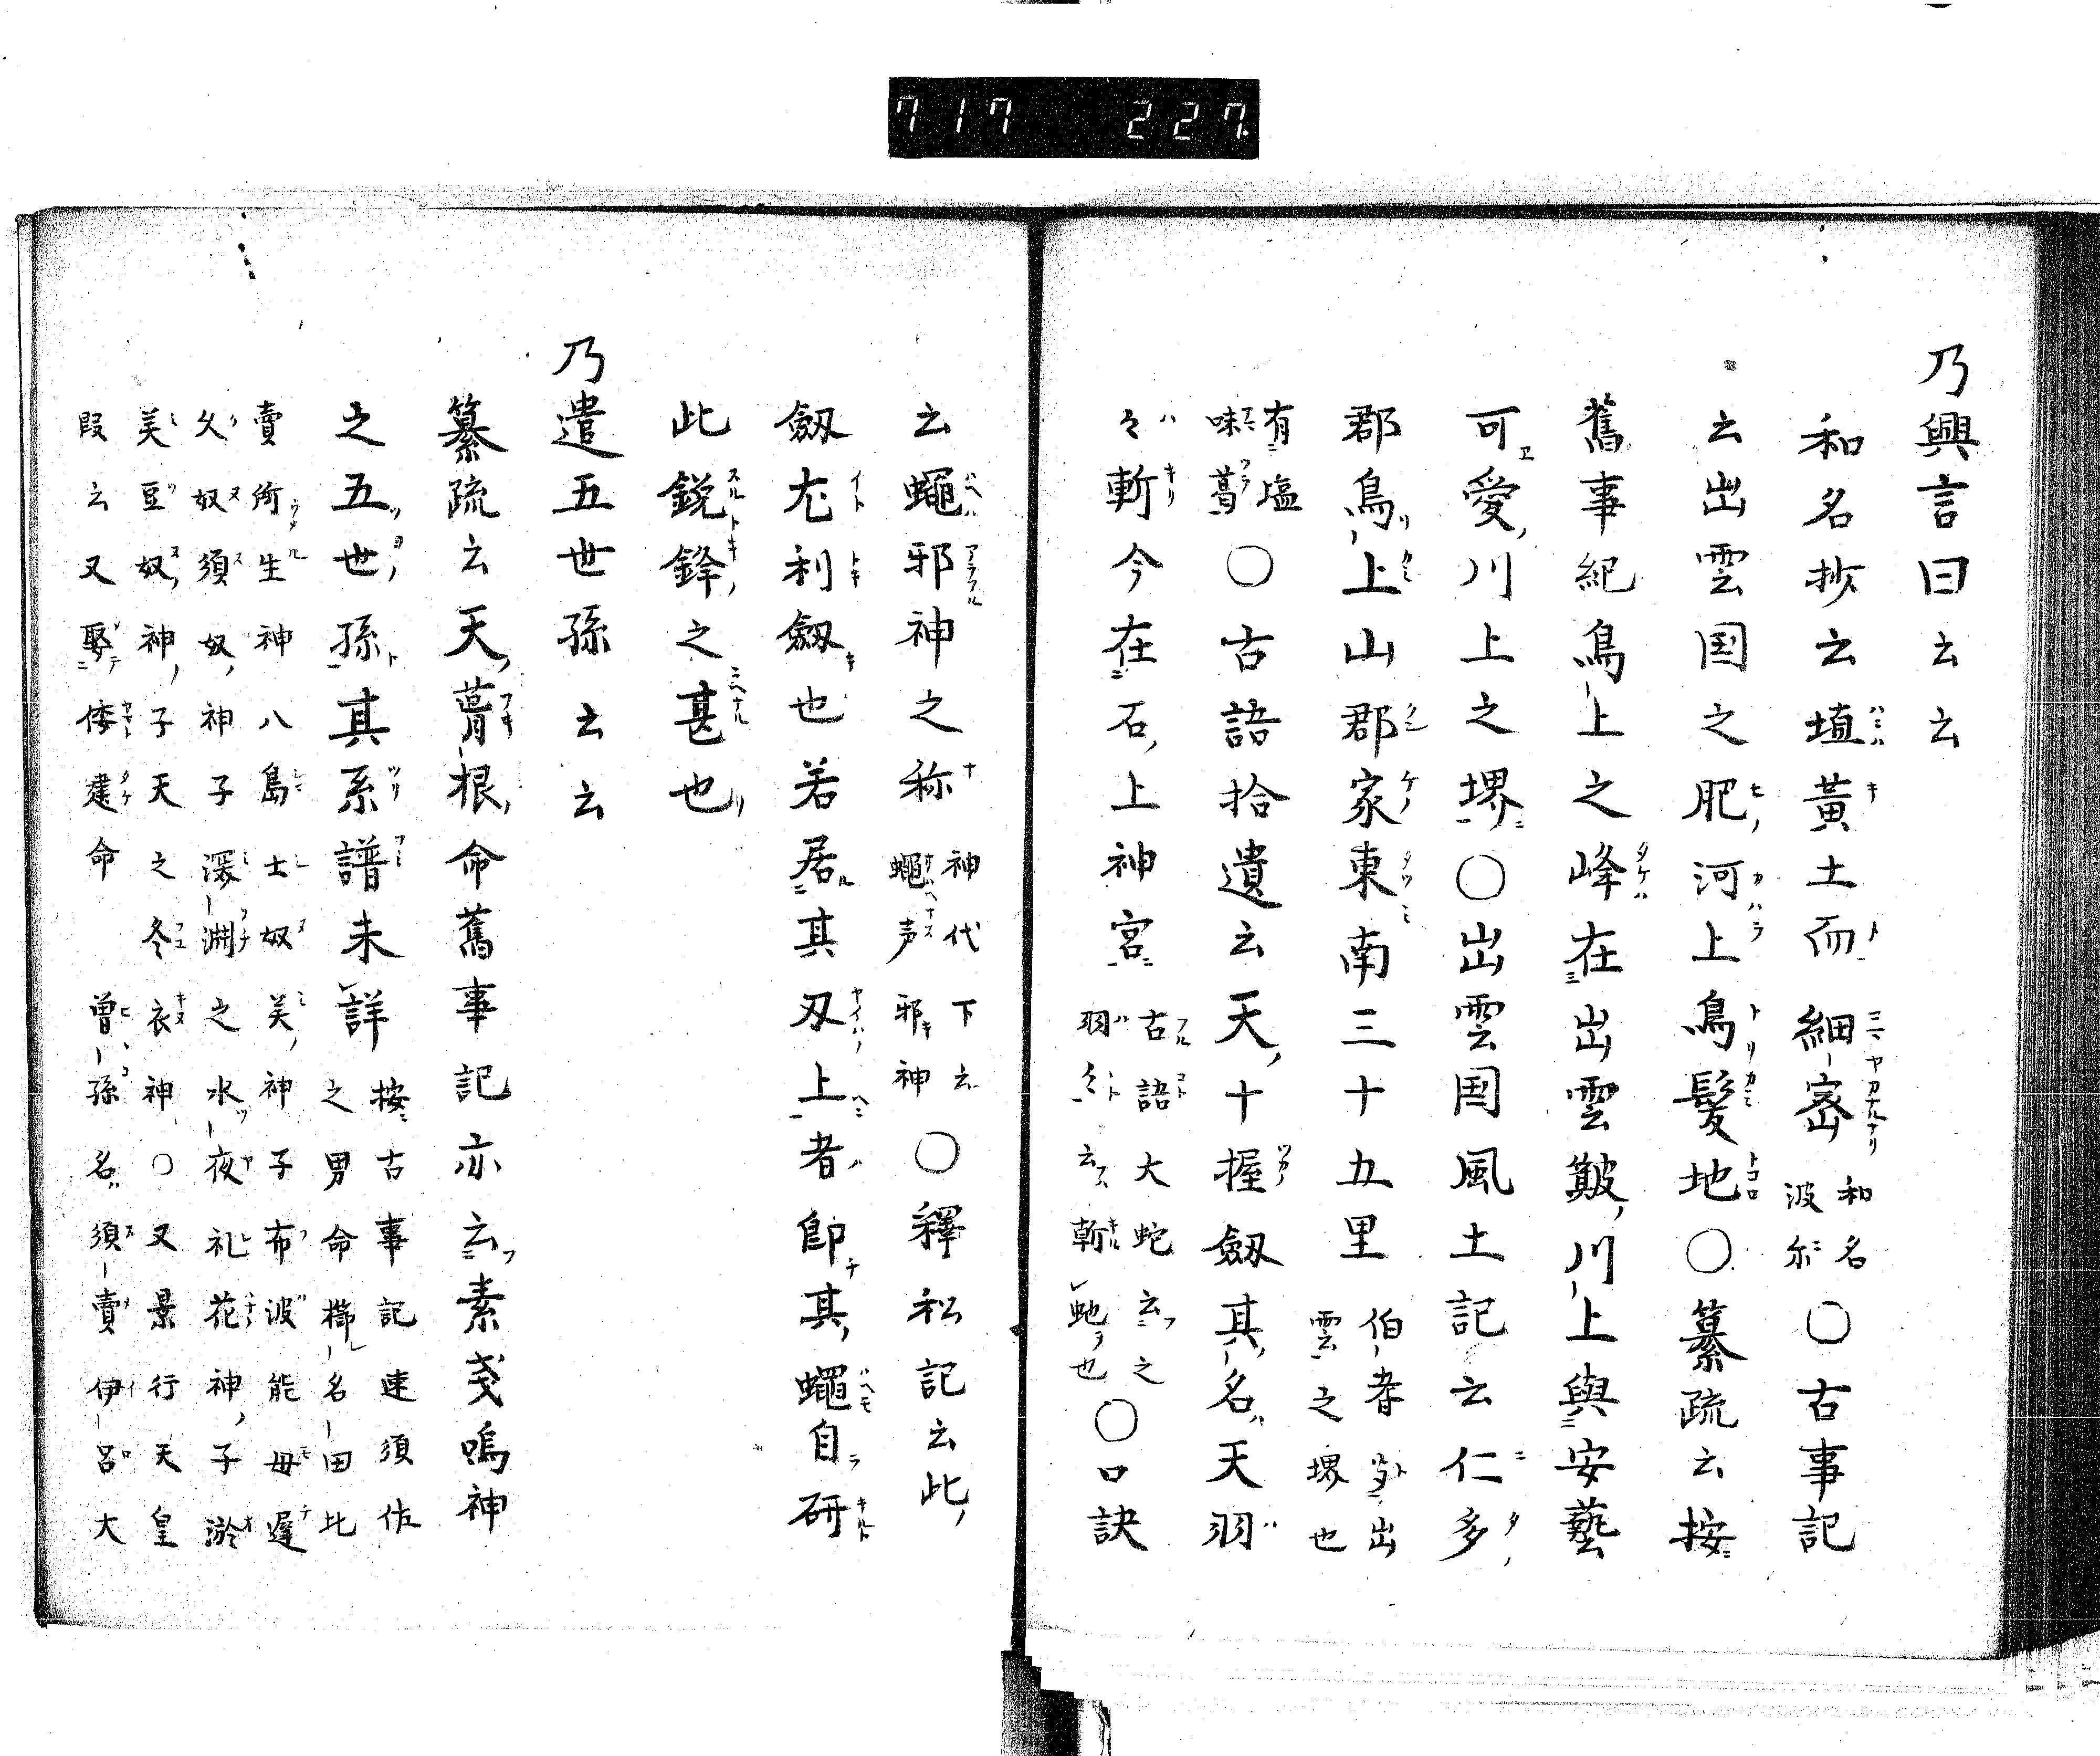 717 227.
乃興言曰云云
和名抄云埴黃土而細密和名波尓〇古事記
云出雲国之肥河上鳥髮地〇纂疏云按
舊事紀鳥上之峰在出雲簸川上與安藝
可愛川上之堺〇出雲国風土記云仁多
郡鳥上山郡家東南三十五里伯耆与出雲之堺也
有塩味葛〇古語拾遺云天十握劔其名天羽
々斬今在石上神宮古語大蛇云之羽々云斬虵也〇口訣
云蠅邪神之称神代下云蠅声邪神〇釋私記云此
劔尤利劔也若居其刃上者即其蠅自斫
此銳鋒之甚也
乃遣五世孫云云
纂疏云天葺根命舊事記亦云素戔嗚神
之五世孫其系譜未詳按古事記速須佐之男命櫛名田比
賣所生神八島士奴美神子布波能母遲
久奴須奴神子深淵之水夜礼花神子淤
美豆奴神子天之冬衣神〇又景行天皇
段云又娶倭建命曽孫名須賣伊呂大